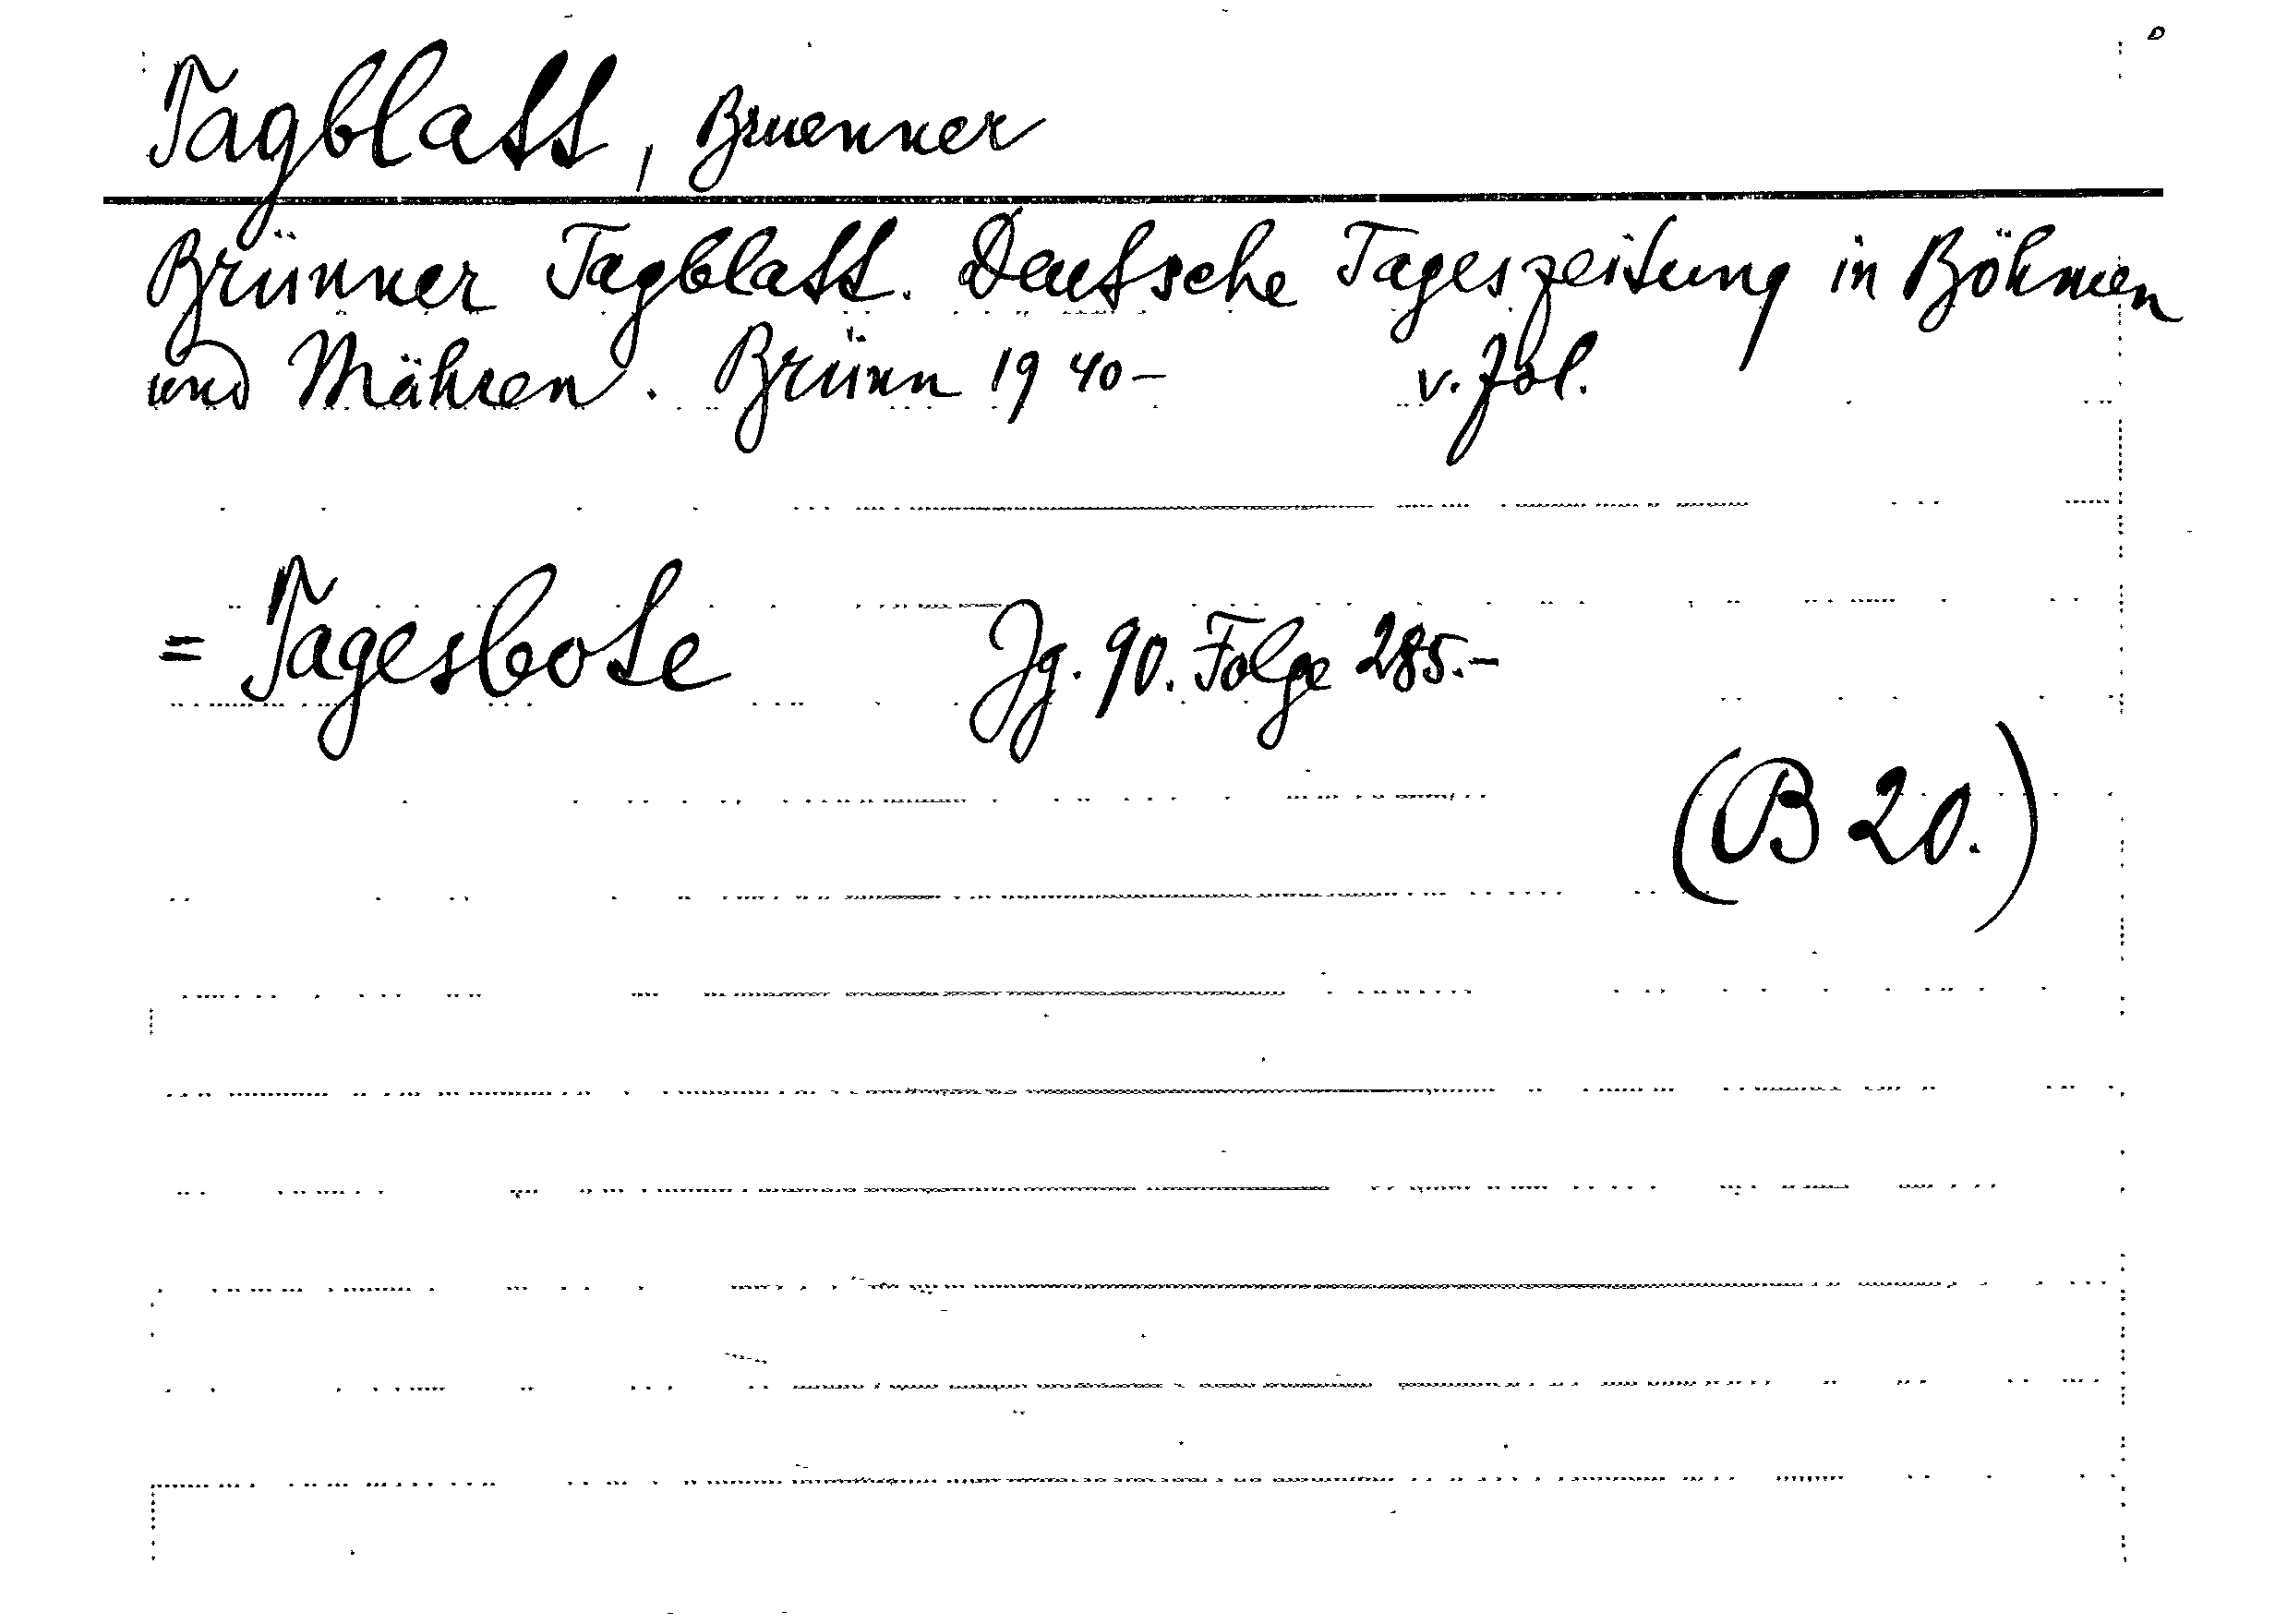 Tagblatt, Bruenner
Brünner Tagblatt. Deutsche Tageszeitung in Böhmen
und Mähren. Brünn 1940– v. fol.
= Tagesbote Jg. 90. Folge 285.–
(B 20.)